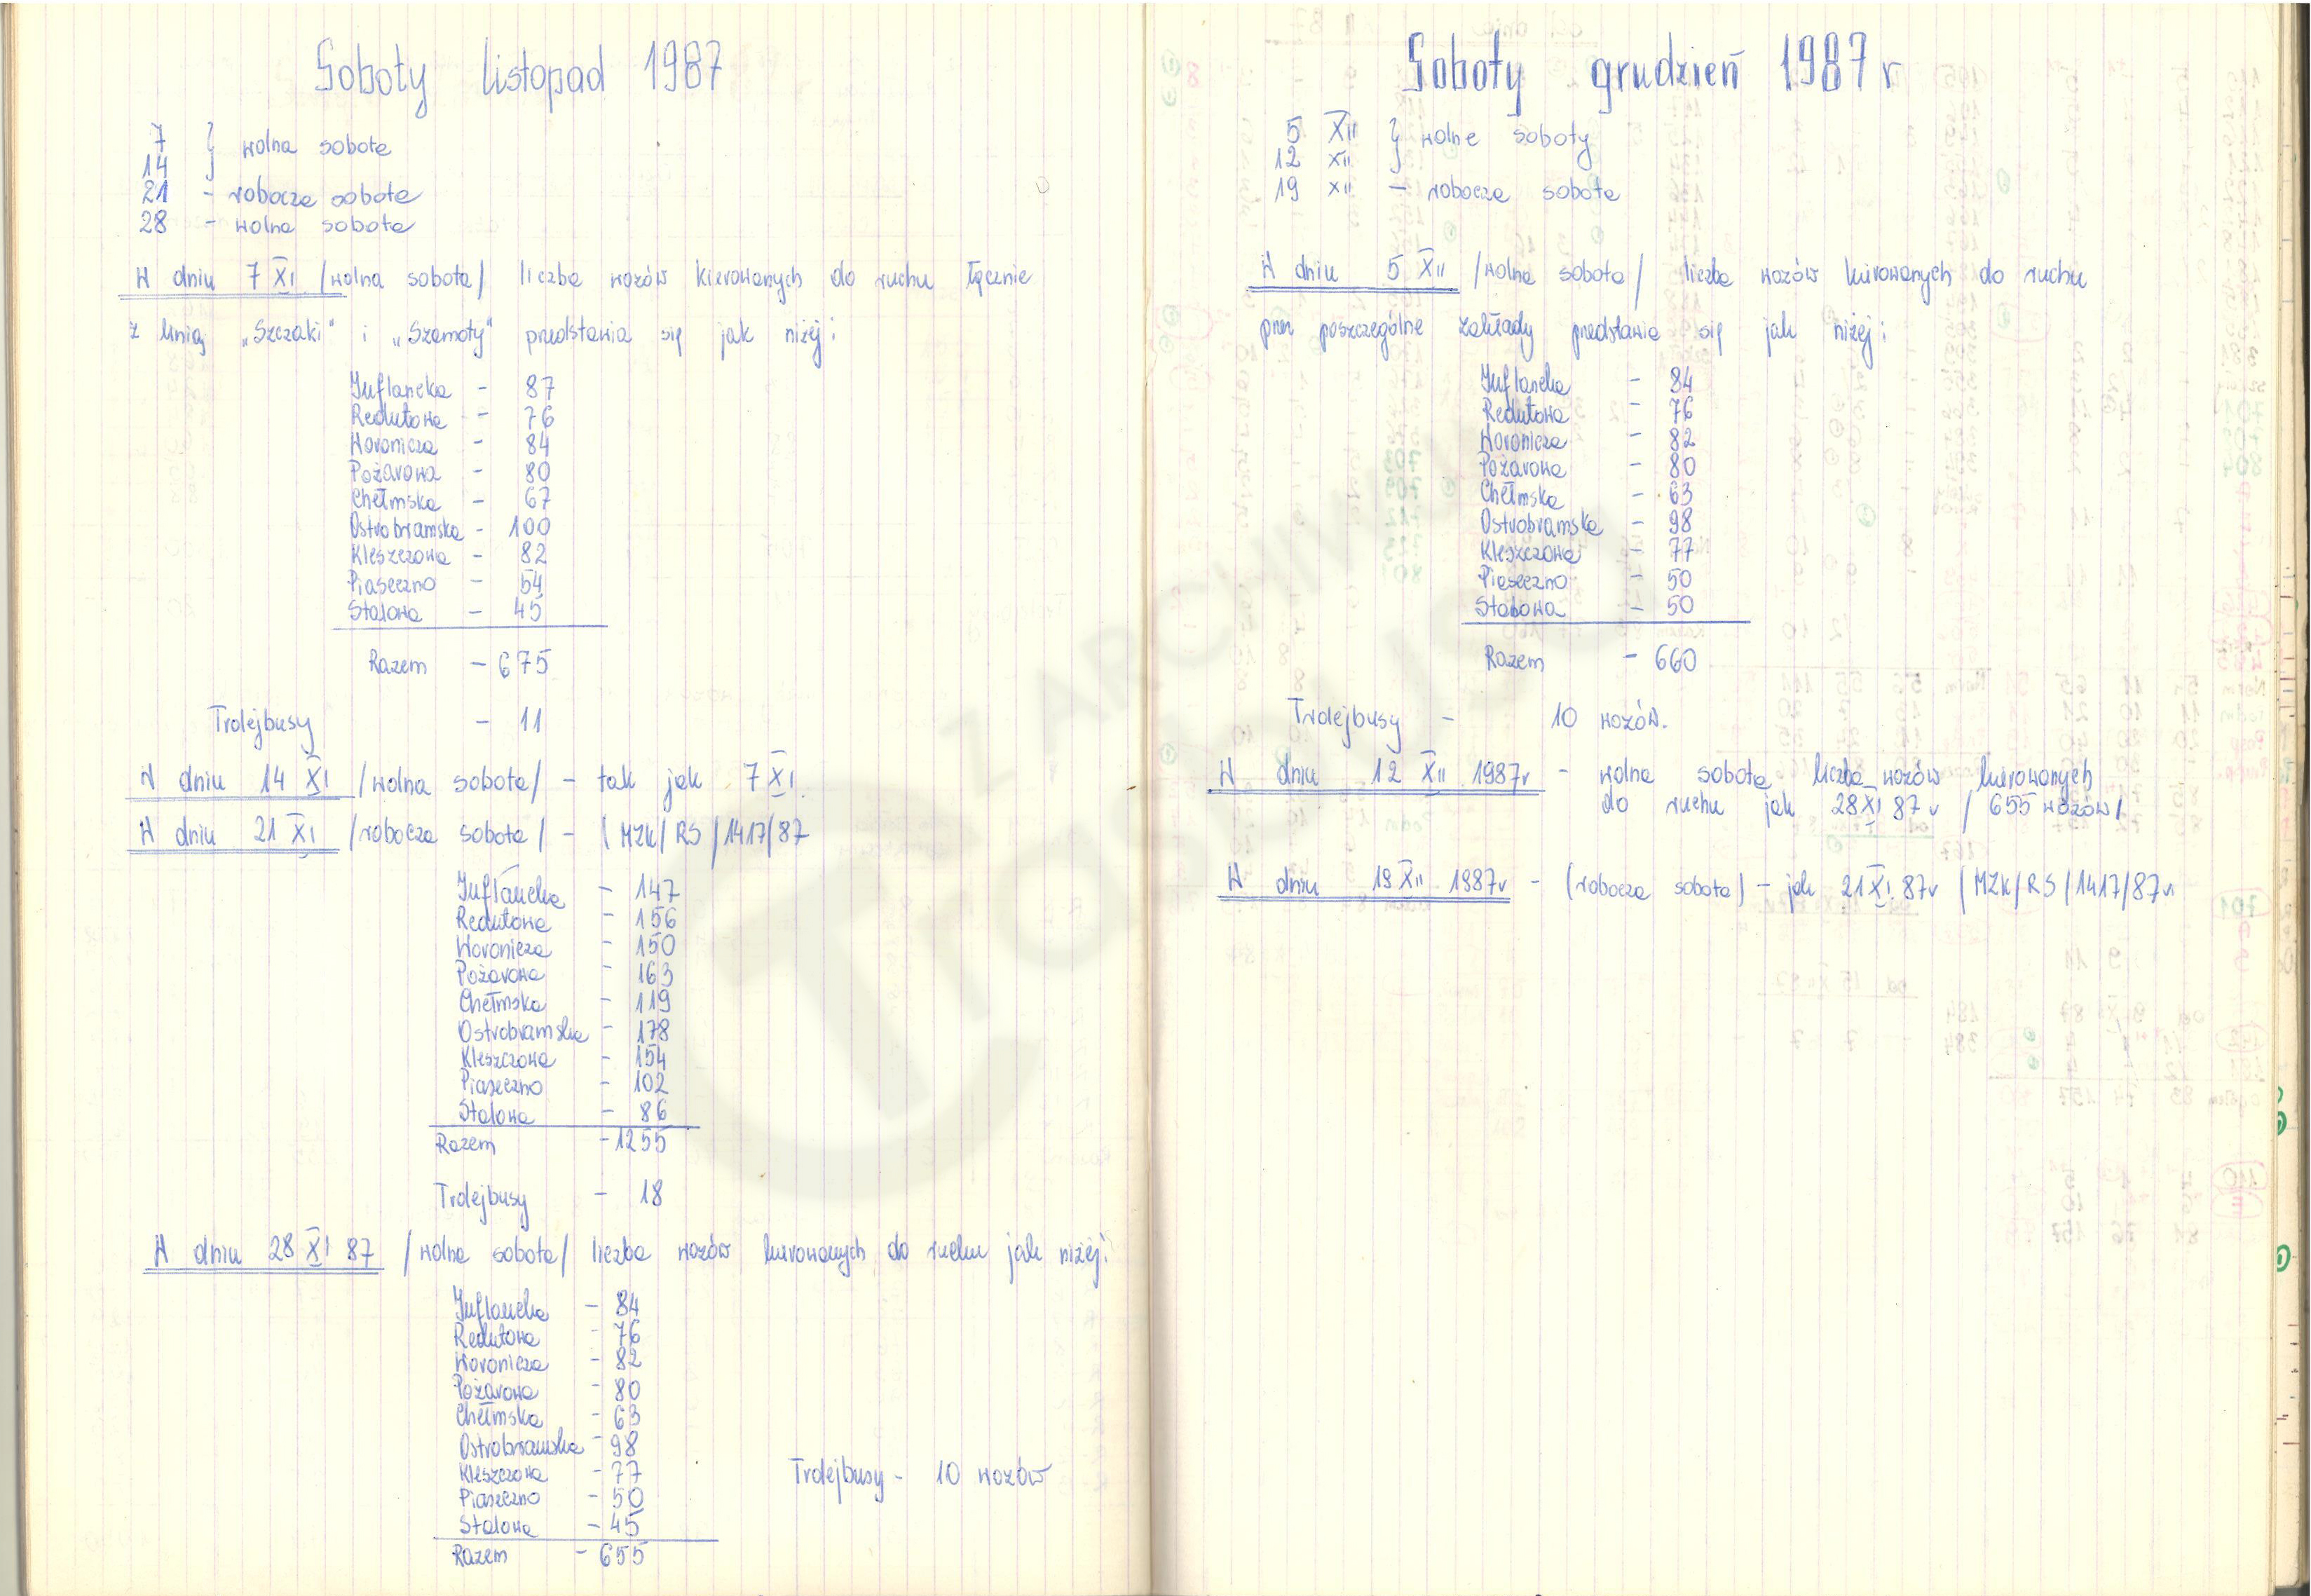 Soboty listopad 1987
7 } wolna sobota
14
21 - robocza sobota
28 - wolna sobota
W dniu 7 XI /wolna sobota/ liczba wozów kierowanych do ruchu łącznie
z linią „Szczaki" i „Szamoty" przedstawia się jak niżej:
Inflancka - 87
Redutowa - 76
Woronicza - 84
Pożarowa - 80
Chełmska - 67
Ostrobramska - 100
Kleszczowa - 82
Piaseczno - 54
Stalowa - 45
Razem - 675
Trolejbusy - 11
W dniu 14 XI /wolna sobota/ - tak jak 7 XI.
W dniu 21 XI /robocza sobota/ - (MZK/RS/1417/87
Inflancka - 147
Redutowa - 156
Woronicza - 150
Pożarowa - 163
Chełmska - 119
Ostrobramska - 178
Kleszczowa - 154
Piaseczno - 102
Stalowa - 86
Razem - 1255
Trolejbusy - 18
W dniu 28 XI 87 /wolna sobota/ liczba wozów kierowanych do ruchu jak niżej:
Inflancka - 84
Redutowa - 76
Woronicza - 82
Pożarowa - 80
Chełmska - 63
Ostrobramska - 98
Kleszczowa - 77
Trolejbusy - 10 wozów
Piaseczno - 50
Stalowa - 45
Razem - 655
Soboty grudzień 1987 r
5 XII } wolne soboty
12 XII
19 XII - robocza sobota
W dniu 5 XII /wolna sobota/ liczba wozów kierowanych do ruchu
przez poszczególne zakłady przedstawia się jak niżej:
Inflancka - 84
Redutowa - 76
Woronicza - 82
Pożarowa - 80
Chełmska - 63
Ostrobramska - 98
Kleszczowa - 77
Piaseczno - 50
Stalowa - 50
Razem - 660
Trolejbusy - 10 wozów.
W dniu 12 XII 1987r - wolna sobota liczba wozów kierowanych
do ruchu jak 28 XI 87 r /655 wozów/
W dniu 19 XII 1987r - (robocza sobota) - jak 21 XI 87r /MZK/RS/1417/87r
Z ARCHIWUM